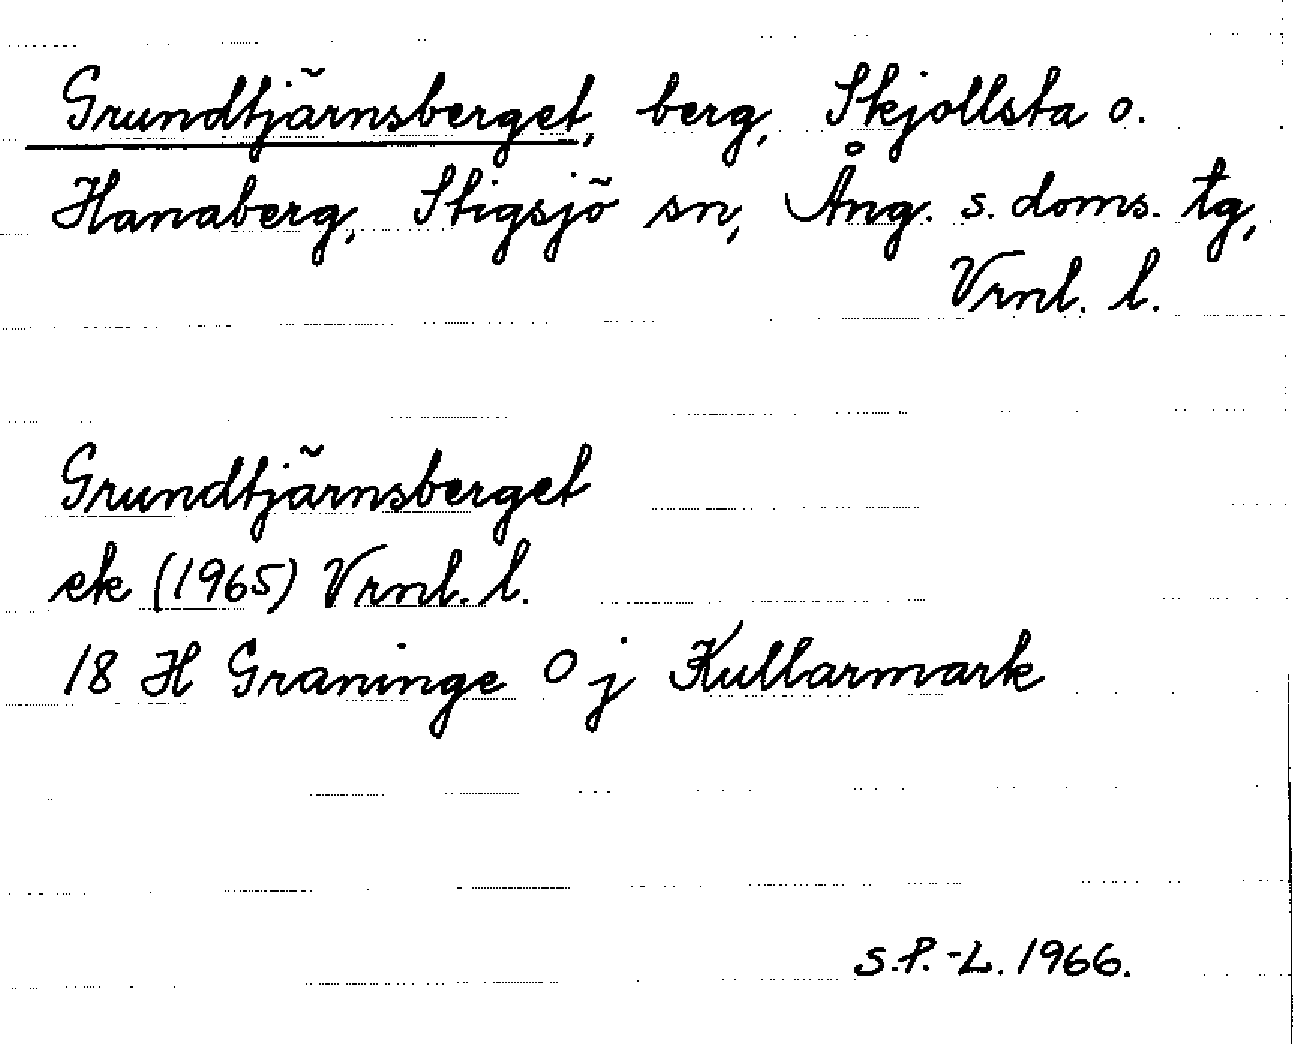 Grundtjärnsberget, berg, Skjollsta o.
Hanaberg, Stigsjö sn, Ång. s. doms. tg,
Vrnl. l.
Grundtjärnsberget
ek (1965) Vrnl. l.
18 H Graninge O j Kullarmark
S.P.-L. 1966.